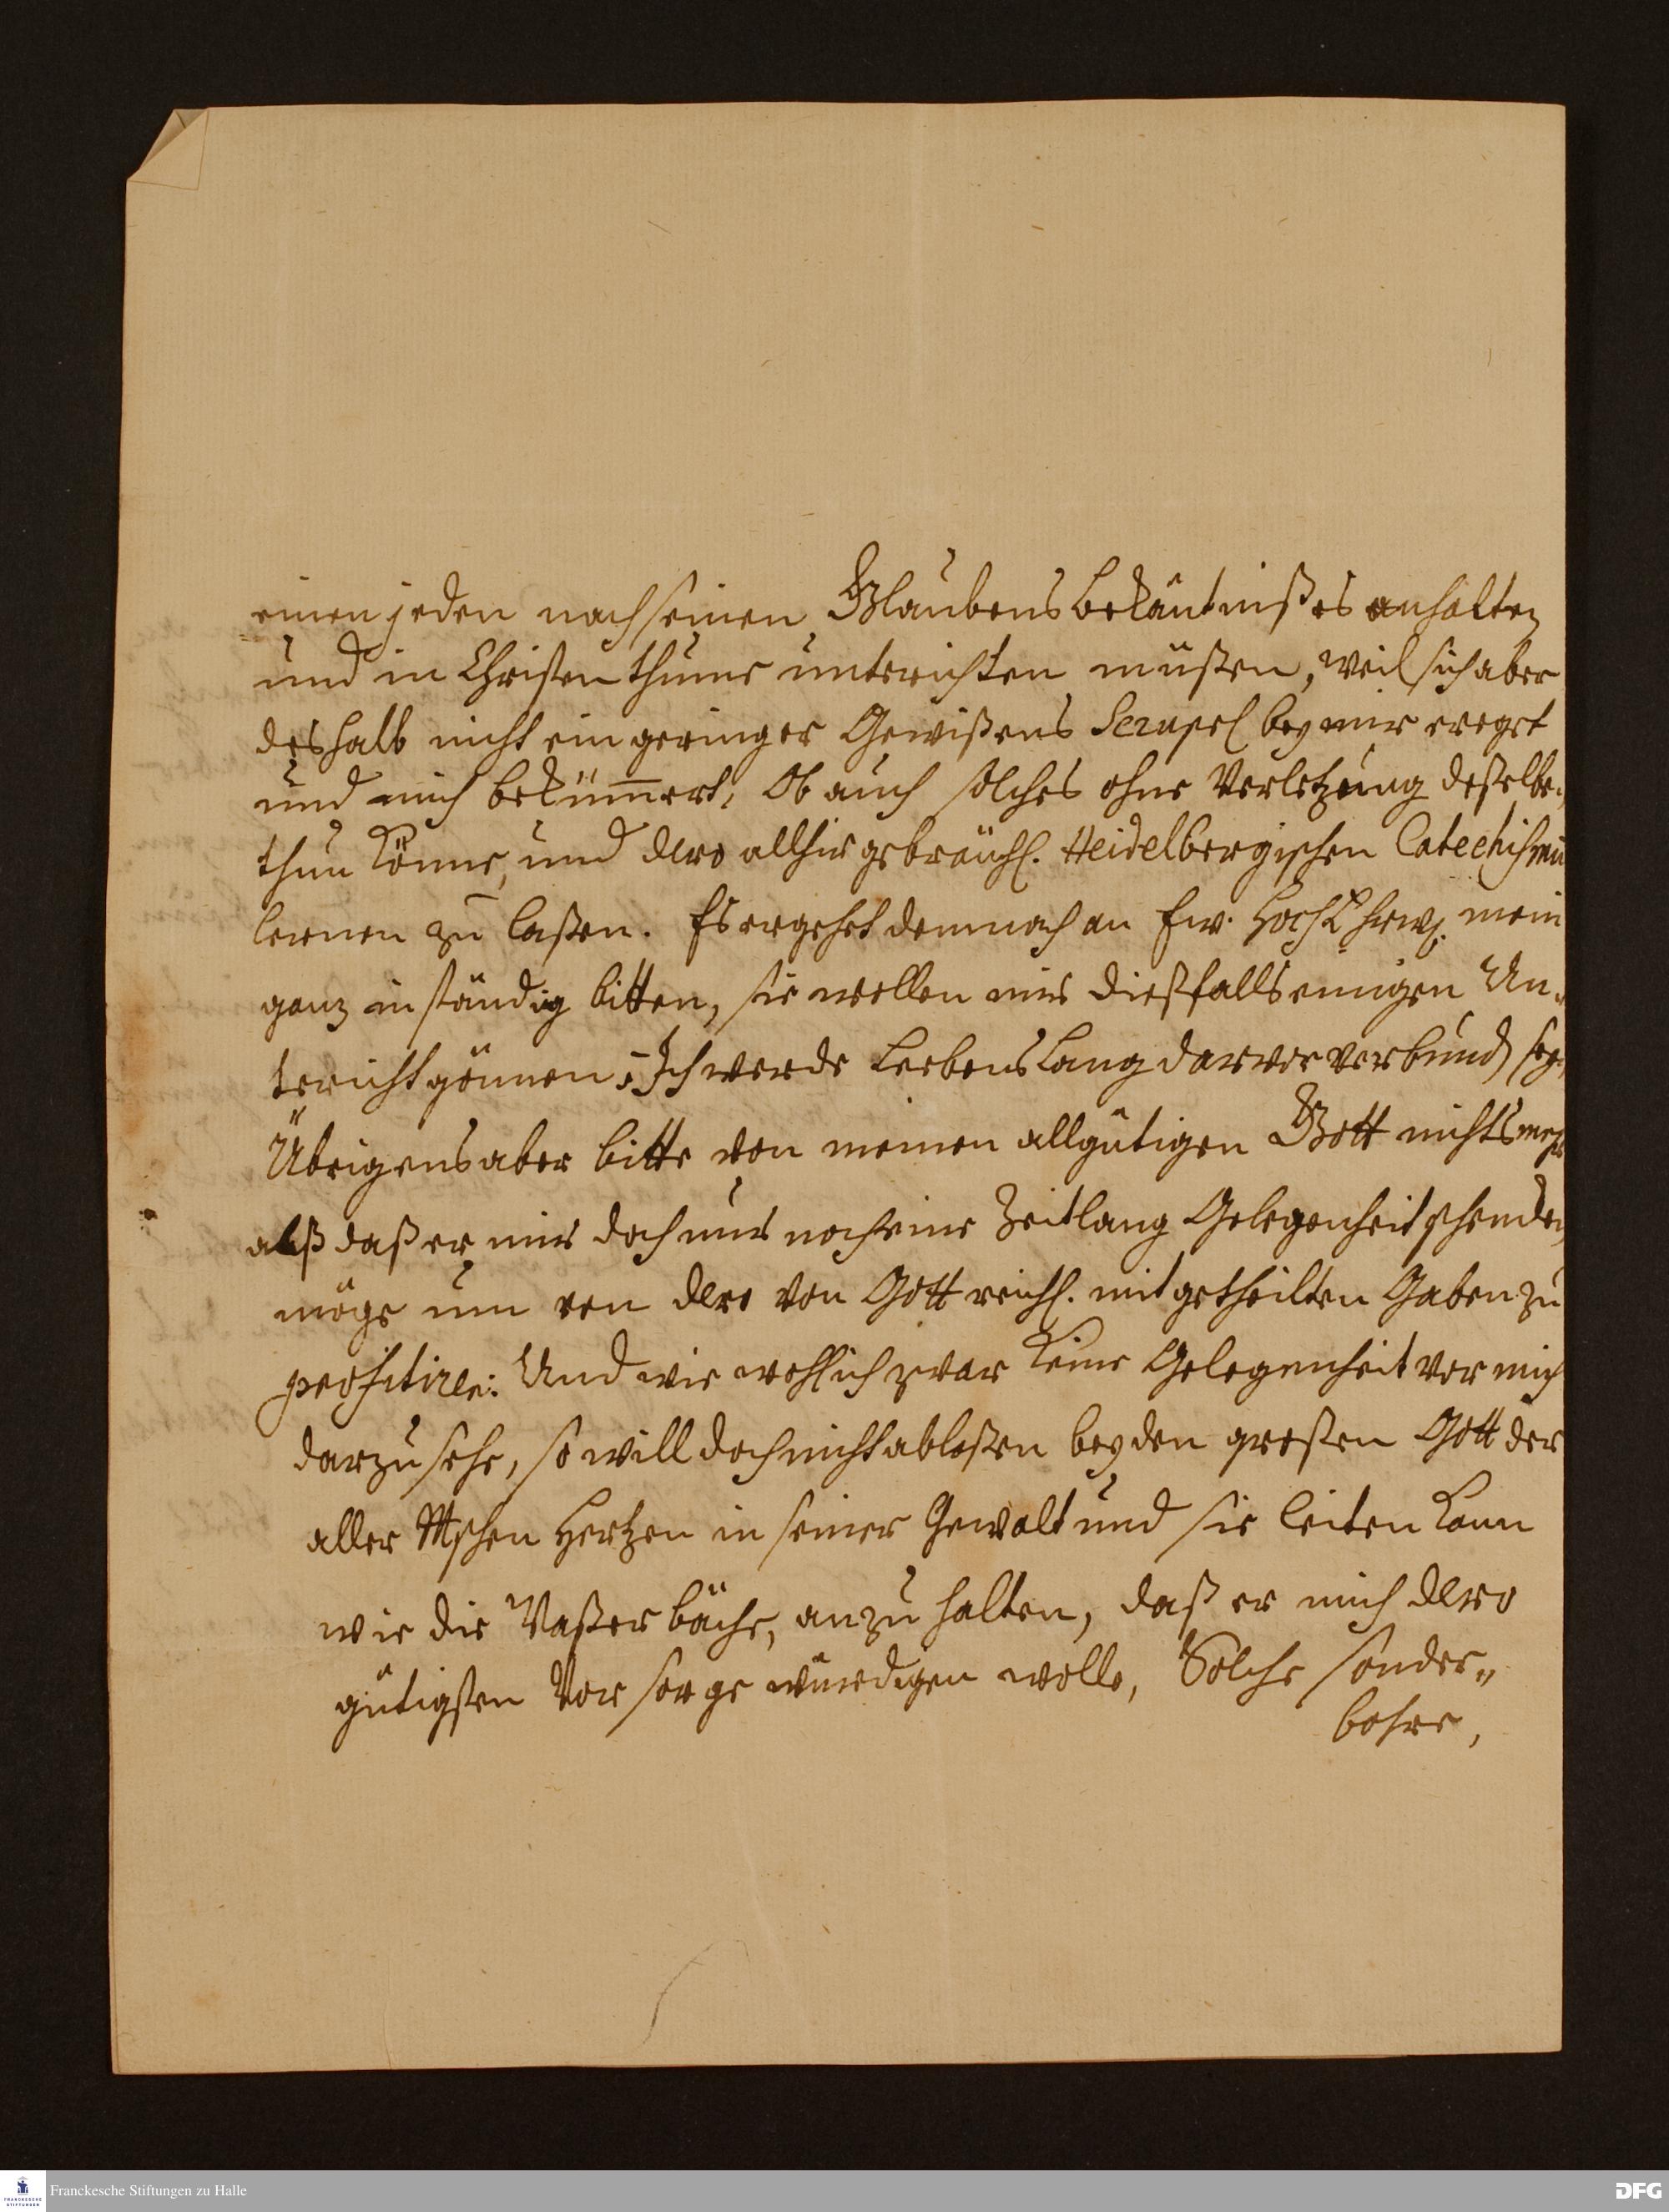 einen jeden nach seinen Glaubens bekäntnißes anhalten
und in Christenthume unterichten müßen, weil sich aber
deshalb nicht ein geringer Gewißens Scrupel bey mir ereget
und mich bekümert, Ob auch solches ohne Verletzung deßelben
thun könne, und dero allhir gebräuchl. Heidelbergischen Catechismu
lernen zu laßen. Es ergehet demnach an Ew. HochEhrw. mein
ganz inständig bitten, sie wollen mir dießfalls einigen Un-
tericht gönnen, Ich werde Leebenslang darvor verbund sey
Übrigens aber bitte von meinen allgütigen Gott nichts mehr
alß daß er mir doch nur noch eine Zeitlang Gelegenheit schenden
möge um von dero von Gott reichl. mitgetheilten Gaben zu
profitiren: Und wie wohl ich zwar keine Gelegenheit vor mich
darzu sehe, so will doch nicht ablaßen bey den großen Gott der
aller Mschen Hertzen in seiner Gewalt und sie leiten kann
wie die Waßerbäche, anzuhalten, daß er mich dero
gütigsten Vorsorge würdigen wolle, Solche sonder„
bahre,
Franckesche Stiftungen zu Halle
FRANCKESCHE STIFTUNGEN
DFG